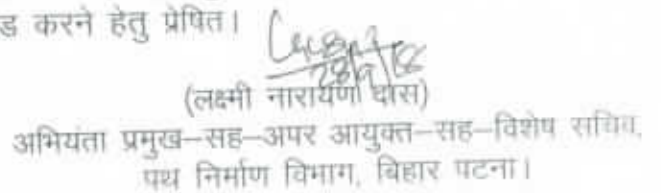 ड करने हेतु प्रेषित।
28/9/18
(लक्ष्मी नारायण दास)
अभियंता प्रमुख–सह–अपर आयुक्त–सह–विशेष सचिव,
पथ निर्माण विभाग, बिहार पटना।